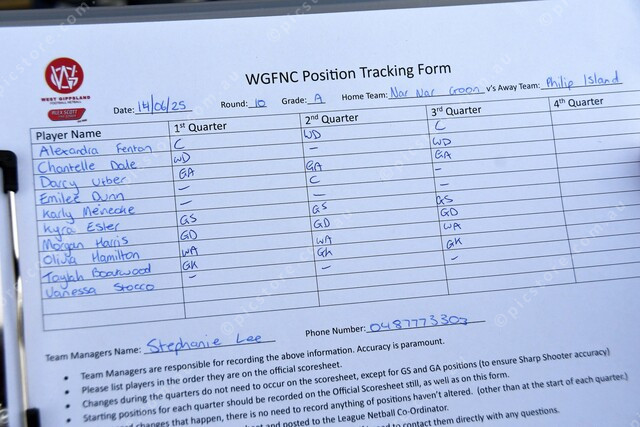 WEST GIPPSLAND
FOOTBALL NETBALL
ALEX SCOTT
WGFNC Position Tracking Form
Date: 14/06/25 Round: 10 Grade: A Home Team: Nar Nar Goon v's Away Team: Philip Island
Player Name 1st Quarter 2nd Quarter 3rd Quarter 4th Quarter
Alexandra Fenton C WD C
Chantelle Dale WD - WD
Darcy Urber GA GA GA
Emilee Dunn - C -
Karly Meinecke - - -
Kyra Ester GS GS GS
Morgan Harris GD GD GD
Olivia Hamilton WA WA WA
Taylah Boarwood GK GK GK
Vanessa Stocco - - -
Team Managers Name: Stephanie Lee Phone Number: 0487773303
• Team Managers are responsible for recording the above information. Accuracy is paramount.
• Please list players in the order they are on the official scoresheet.
• Changes during the quarters do not need to occur on the scoresheet, except for GS and GA positions (to ensure Sharp Shooter accuracy)
• Starting positions for each quarter should be recorded on the Official Scoresheet still, as well as on this form.
changes that happen, there is no need to record anything of positions haven't altered. (other than at the start of each quarter.)
and posted to the League Netball Co-Ordinator.
to contact them directly with any questions.